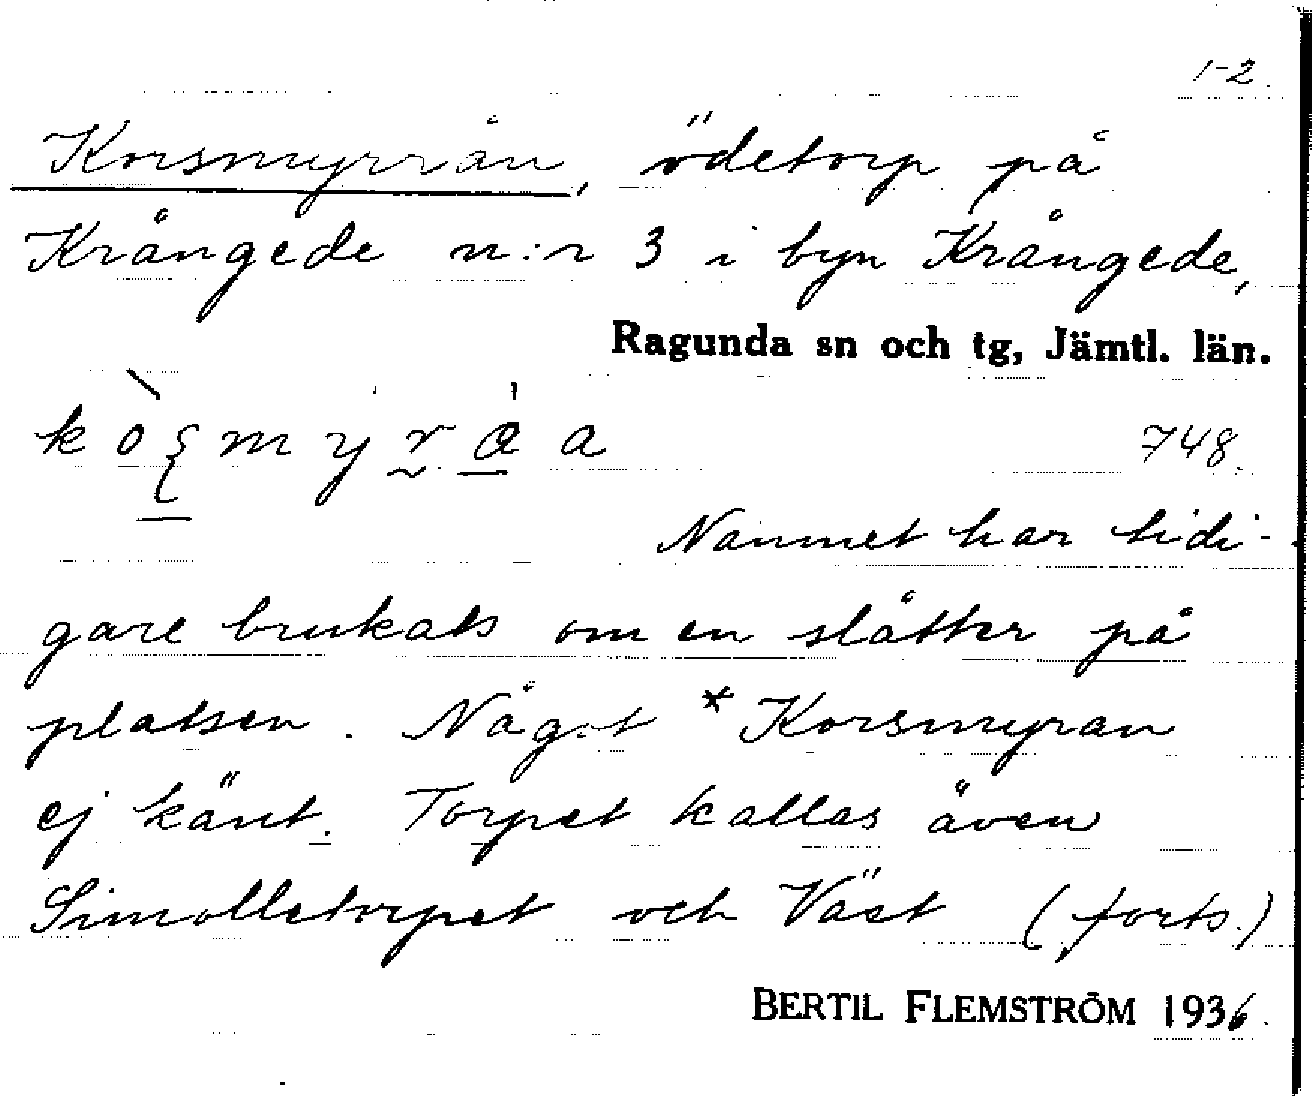 1-2.
Korsmyrrån, ödetorp på
Krångede n:r 3 i byn Krångede,
Ragunda sn och tg, Jämtl. län.
748.
Namnet har tidi-
gare brukats om en slåtter på
platsen. Något *Korsmyran
ej känt. Torpet kallas även
Simolletorpet och Väst (forts.)
BERTIL FLEMSTRÖM 1936.